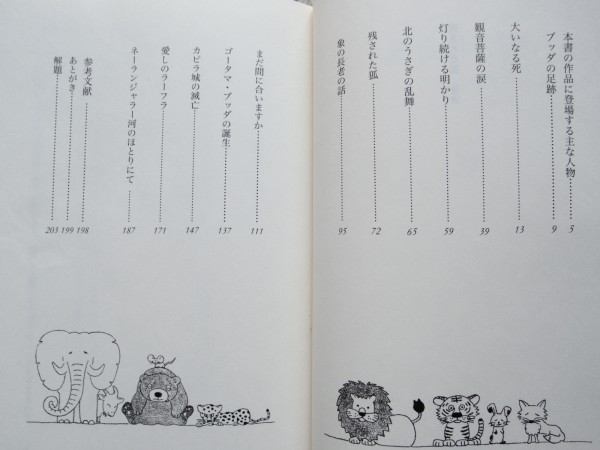 本書の作品に登場する主な人物……5
ブッダの足跡……9
大いなる死……13
観音菩薩の涙……39
灯り続ける明かり……59
北のうさぎの乱舞……65
残された狐……72
象の長老の話……95
まだ間に合いますか……111
ゴータマ・ブッダの誕生……137
カピラ城の滅亡……147
愛しのラーフラ……171
ネーランジャラー河のほとりにて……187
参考文献……198
あとがき……199
解題……203